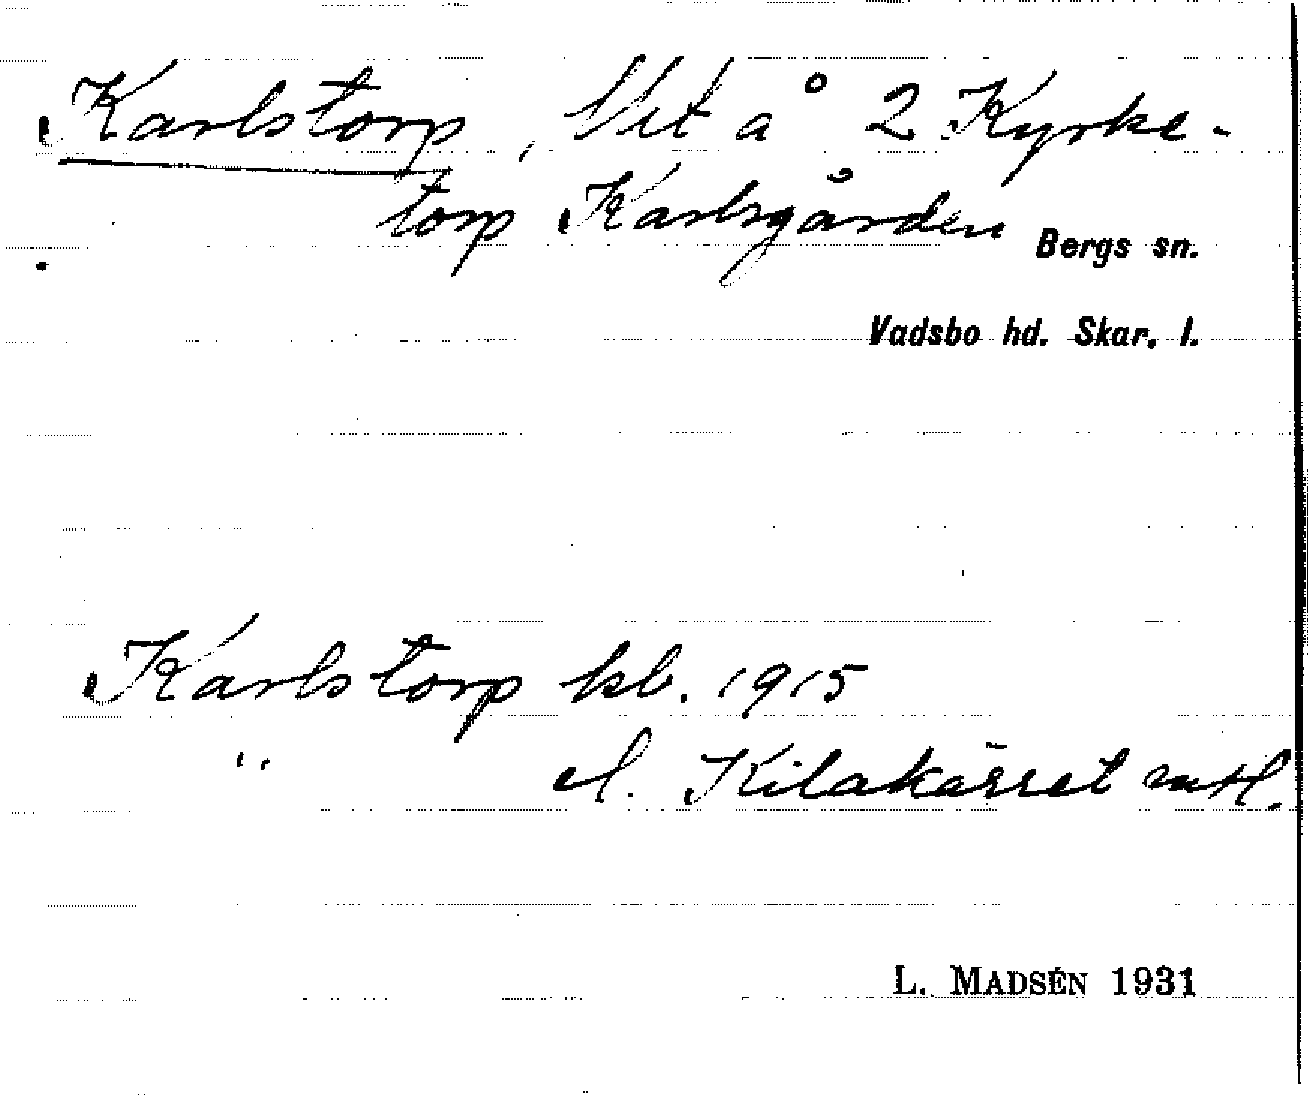 Karlstorp, Vit å 2 Kyrke-
torp Karlsgården
Bergs sn.
Vadsbo hd. Skar. l.
Karlstorp kb. 1915
" l. Kilakärret mtl.
L. MADSÉN 1931